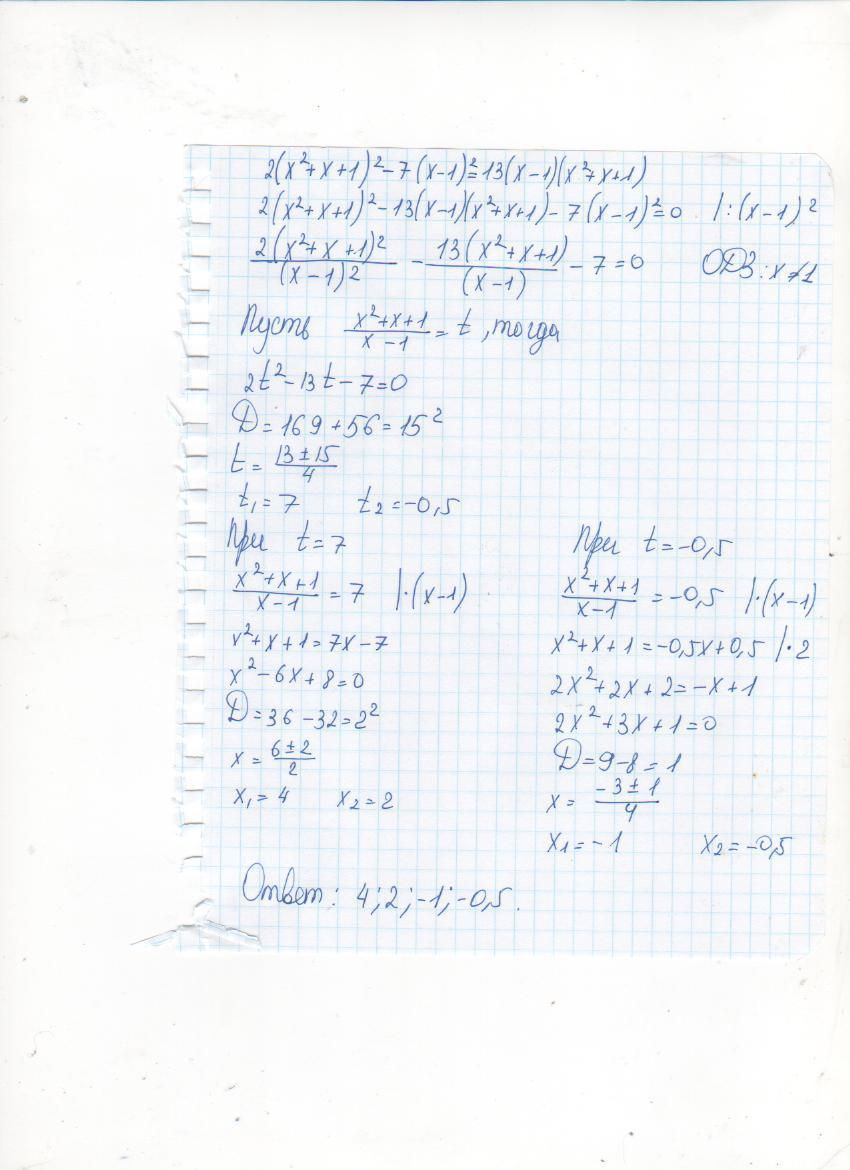 2(x²+x+1)²-7(x-1)²=13(x-1)(x²+x+1)
2(x²+x+1)²-13(x-1)(x²+x+1)-7(x-1)²=0 |:(x-1)²
2(x²+x+1)²/(x-1)² - 13(x²+x+1)/(x-1) - 7=0 ОДЗ: x≠1
Пусть (x²+x+1)/(x-1) = t, тогда
2t²-13t-7=0
D=169+56=15²
t= (13±15)/4
t₁=7 t₂=-0,5
При t=7
(x²+x+1)/(x-1) = 7 |·(x-1)
x²+x+1=7x-7
x²-6x+8=0
D=36-32=2²
x= (6±2)/2
x₁=4 x₂=2
При t=-0,5
(x²+x+1)/(x-1) = -0,5 |·(x-1)
x²+x+1=-0,5x+0,5 |·2
2x²+2x+2=-x+1
2x²+3x+1=0
D=9-8=1
x= (-3±1)/4
x₁=-1 x₂=-0,5
Ответ: 4;2;-1;-0,5.